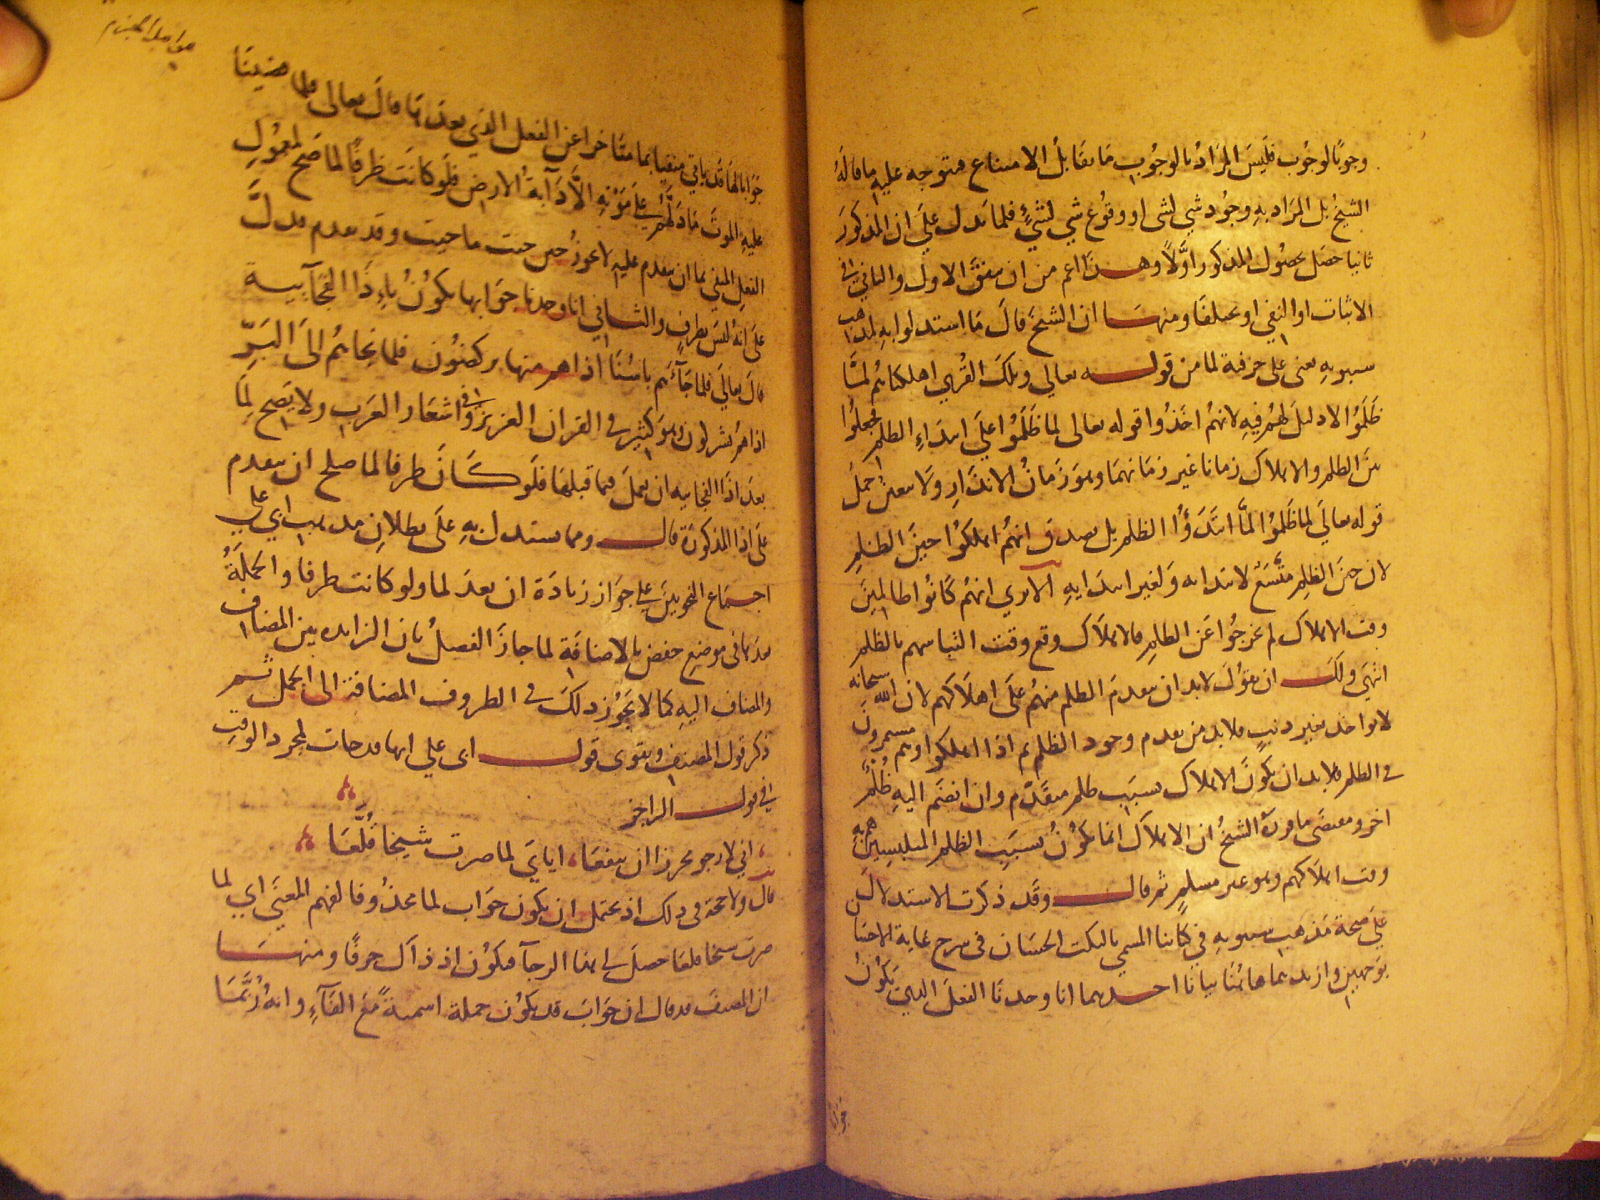 وجوبًا لوجوب فليس المراد بالوجوب ما يقابل الامتناع متوجه عليه ما قاله
الشيخ بل المراد به وجود شي لشي او وقوع شي لشيء فلما تدل على ان المذكور
ثانيا حصل بحصول المذكور اولا وهذا اعم من ان يتفق الاول والثاني في
الاثبات او النفي او يختلفا ومنها ان الشيخ قال ما استدلوا به لمذهب
سيبويه يعني على حرفية لما من قوله تعالى وتلك القرى اهلكناهم لما
ظلموا لا دليل لهم فيه لانهم اخذوا قوله تعالى لما ظلموا على ابتداء الظلم فجعلوا
بين الظلم والاهلاك زمانا غير زمانهما وهو زمان الانذار ولا يتعين حمل
قوله تعالى لما ظلموا لما ابتدؤا الظلم بل يصدق انهم اهلكوا حين الظلم
لان حين الظلم متسع لابتدايه ولغير ابتدايه الا ترى انهم كانوا ظالمين
وقت الاهلاك لم يخرجوا عن الظلم فالاهلاك وقع وقت التباسهم بالظلم
انتهى ولك ان تقول لابد ان يتقدم الظلم منهم على اهلاكهم لان الله سبحانه
لا يواخذ بغير ذنب فلابد من تقدم وجود الظلم ثم اذا اهلكوا وهم مستمرون
في الظلم فلابد ان يكون الاهلاك بسبب ظلم متقدم وان انضم اليه ظلم
اخر ومقتضى ما قرره الشيخ ان الاهلاك انما يكون بسبب الظلم المتلبسين هم به
وقت اهلاكهم وهو غير مسلم ثم قال وقد ذكرت الاستدلال
على صحة مذهب سيبويه في كتابنا المسمي بالنكت الحسان في شرح غاية الاحسان
بوجهين وازيدهما هاهنا بيانا احدهما انا وجدنا الفعل الذي يكون
جوابا لها قد ياتي منفيا بما متاخرا عن الفعل الذي بعدها قال تعالى فلما قضينا
عليه الموت ما دلهم على موته الا دآبة الارض فلو كانت ظرفا لما صح لمعمول
الفعل المنفي بما ان يتقدم عليه لا يجوز حين جيت ما جيت وقد تقدم فدل
على انه ليس بظرف والثاني انا وجدنا جوابها يكون باذا الفجآئية
قال تعالى فلما جآءهم باسنا اذا هم منها يركضون فلما نجاهم الى البر
اذا هم يشركون وهو كثير في القران العزيز وفي اشعار العرب ولا يصح لما
بعد اذا الفجاييه ان يعمل فيما قبلها فلو كان ظرفا لما صلح ان يتقدم
على اذا المذكورة قال ومما يستدل به على بطلان مذهب ابي علي
اجتماع النحويين على جواز زيادة ان بعد لما ولو كانت ظرفا والجملة
بعدها في موضع خفض بالاضافة لما جاز الفصل بان الزايده بين المضاف
والمضاف اليه كما لا يجوز ذلك في الظروف المضافة الى الجمل ثم
ذكر قول المصنف ويقوي قول ابي علي انها قد جات لمجرد الوقت
في قول الراجز
اني لارجو محرزا ان ينفعا، اياي لما صرت شيخا قلعا
قال ولا حجة في ذلك اذ يحتمل ان يكون جواب لما محذوفا لفهم المعنى اي لما
صرت شيخا قلعا حصل لي هذا الرجآ فتكون اذ ذاك حرفا ومنها
ان المصنف قد قال ان جوابه قد يكون جملة اسمية مع الفآء وانه ربما